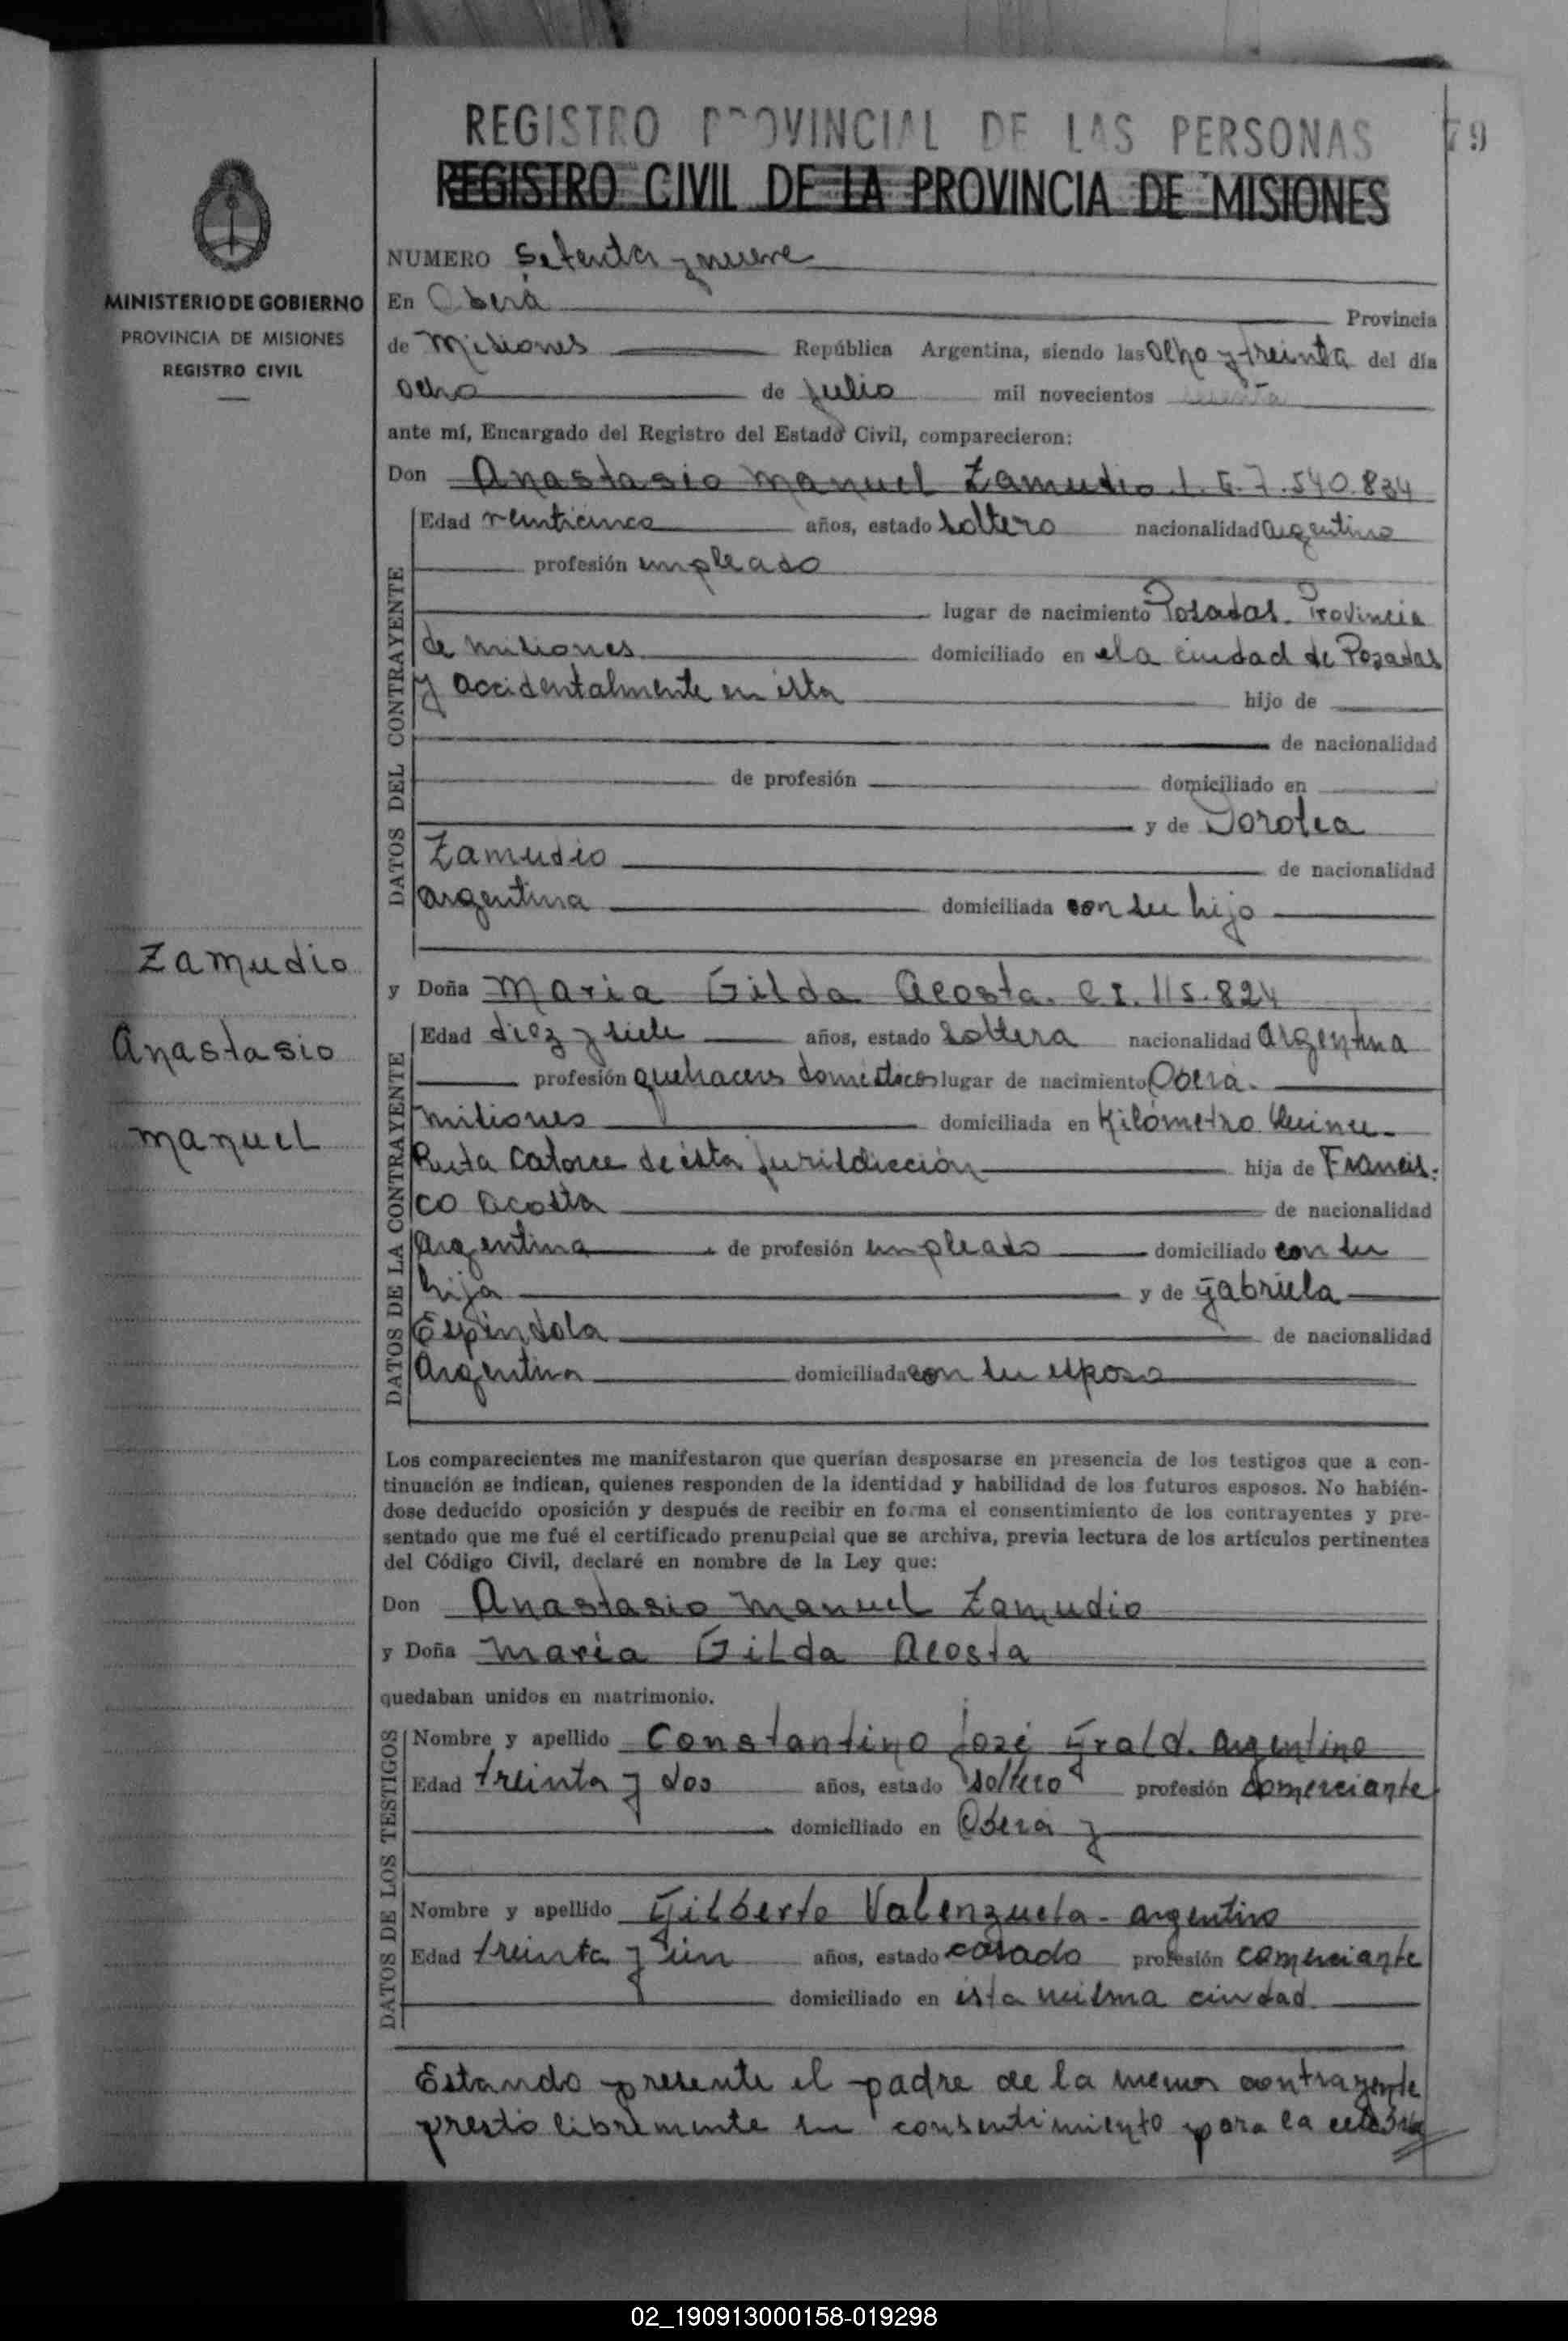 REGISTRO PROVINCIAL DE LAS PERSONAS
79
REGISTRO CIVIL DE LA PROVINCIA DE MISIONES
MINISTERIO DE GOBIERNO
PROVINCIA DE MISIONES
REGISTRO CIVIL
NUMERO Setenta y nueve
En Oberá Provincia
de Misiones República Argentina, siendo las ocho y treinta del día
ocho de julio mil novecientos
ante mí, Encargado del Registro del Estado Civil, comparecieron:
Don Anastasio Manuel Zamudio. L.E. 7.540.834
DATOS DEL CONTRAYENTE
Edad veinticinco años, estado soltero nacionalidad argentino
profesión empleado
lugar de nacimiento Posadas. Provincia
de misiones domiciliado en ela ciudad de Posadas
y accidentalmente en esta hijo de
de nacionalidad
de profesión domiciliado en
y de Dorotea
Zamudio de nacionalidad
argentina domiciliada con su hijo
Zamudio
Anastasio
Manuel
y Doña Maria Gilda Acosta. C.I. 115.824
DATOS DE LA CONTRAYENTE
Edad diez y siete años, estado soltera nacionalidad Argentina
profesión quehaceres domesticos lugar de nacimiento Oberá.
misiones domiciliada en Kilómetro
Ruta Catorce de esta jurisdicción hija de Francis-
co Acosta de nacionalidad
Argentina de profesión empleado domiciliado con su
hija y de Gabriela
Espindola de nacionalidad
Argentina domiciliada con su esposo
Los comparecientes me manifestaron que querían desposarse en presencia de los testigos que a con-
tinuación se indican, quienes responden de la identidad y habilidad de los futuros esposos. No habién-
dose deducido oposición y después de recibir en forma el consentimiento de los contrayentes y pre-
sentado que me fué el certificado prenupcial que se archiva, previa lectura de los artículos pertinentes
del Código Civil, declaré en nombre de la Ley que:
Don Anastasio Manuel Zamudio
y Doña Maria Gilda Acosta
quedaban unidos en matrimonio.
DATOS DE LOS TESTIGOS
Nombre y apellido Constantino José Grald. Argentino
Edad treinta y dos años, estado soltero profesión Comerciante
domiciliado en Oberá y
Nombre y apellido Gilberto Valenzuela - argentino
Edad treinta y un años, estado casado profesión comerciante
domiciliado en esta misma ciudad.
Estando presente el padre de la menor contrayente
prestó libremente su consentimiento para la
02_190913000158-019298